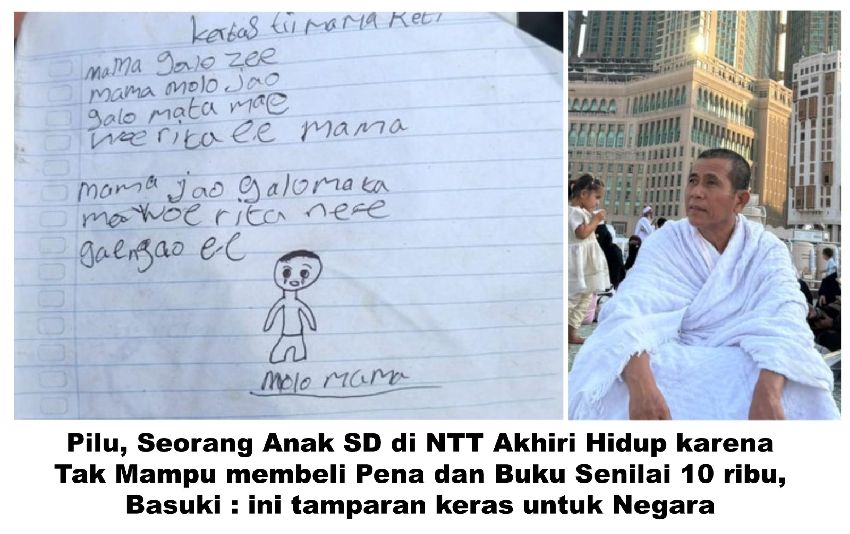 kertas tii mama Reti
mama galo zee
mama molo jao
galo mata mae
woe rita ee mama
mama jao galo mata
mae woe rita nee
gae ngao ee
molo mama
Pilu, Seorang Anak SD di NTT Akhiri Hidup karena
Tak Mampu membeli Pena dan Buku Senilai 10 ribu,
Basuki : ini tamparan keras untuk Negara